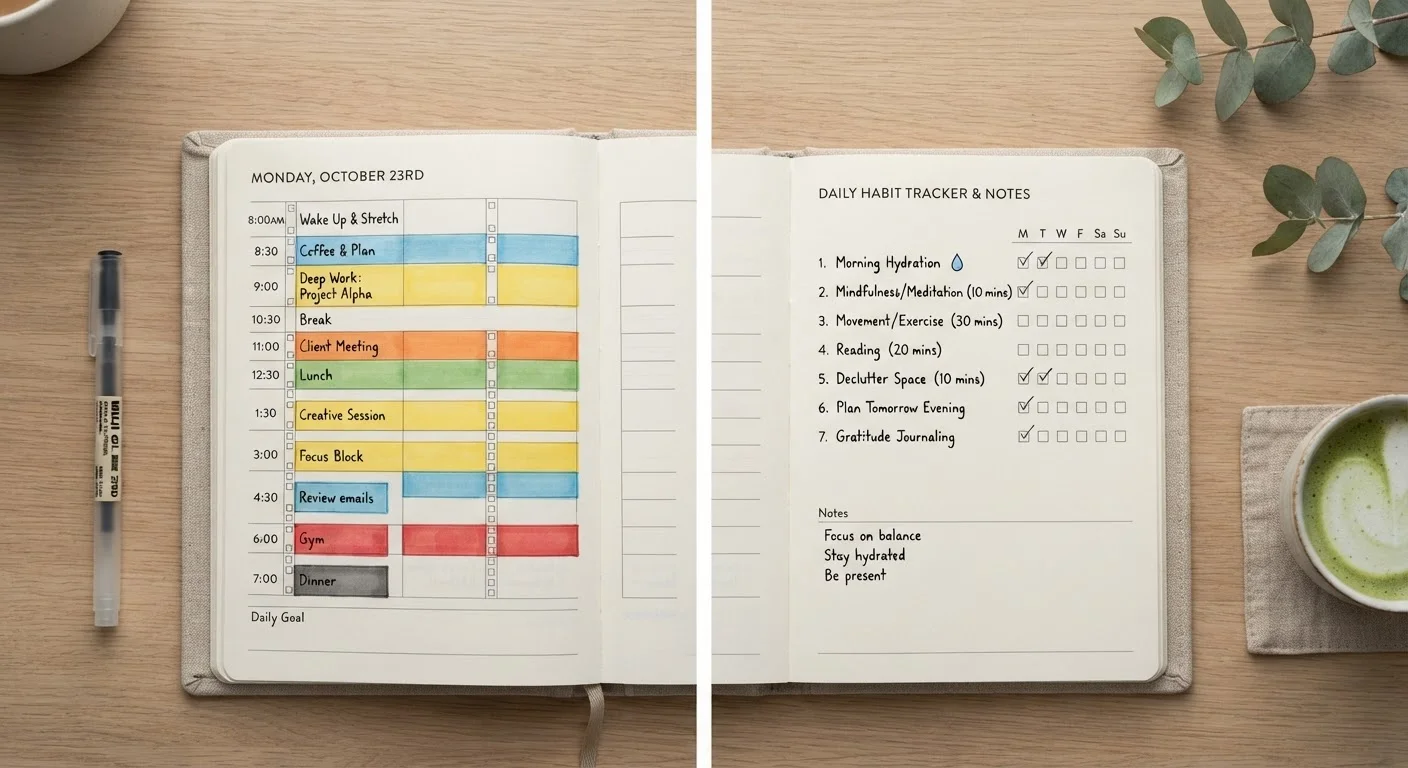 MONDAY, OCTOBER 23RD
8:00AM Wake Up & Stretch
8:30 Coffee & Plan
9:00 Deep Work:
Project Alpha
10:30 Break
11:00 Client Meeting
12:30 Lunch
1:30 Creative Session
3:00 Focus Block
4:30 Review emails
6:00 Gym
7:00 Dinner
Daily Goal
DAILY HABIT TRACKER & NOTES
M T W F Sa Su
1. Morning Hydration
2. Mindfulness/Meditation (10 mins)
3. Movement/Exercise (30 mins)
4. Reading (20 mins)
5. Declutter Space (10 mins)
6. Plan Tomorrow Evening
7. Gratitude Journaling
Notes
Focus on balance
Stay hydrated
Be present